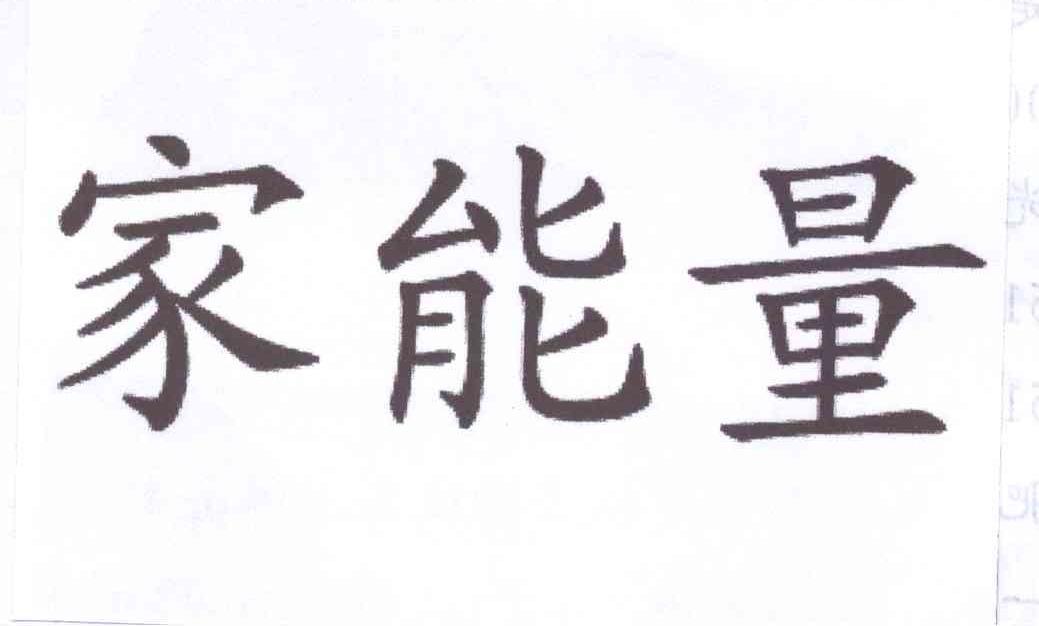 家能量